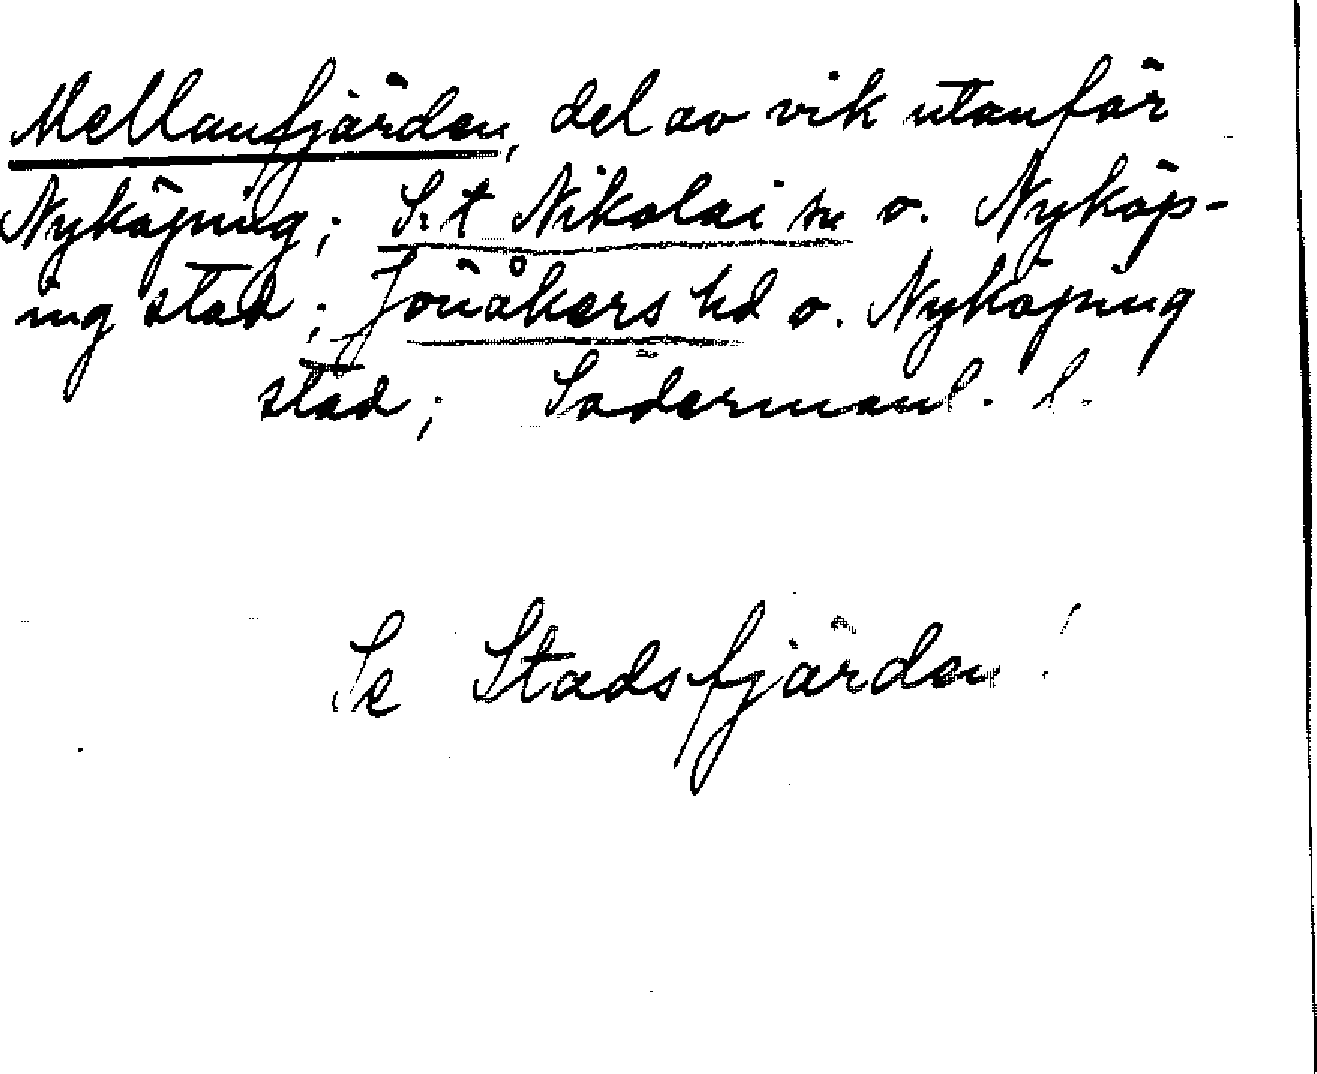 Mellanfjärden, del av vik utanför
Nyköping; S:t Nikolai sn o. Nyköp-
ing stad; Jönåkers hd o. Nyköping
stad; Södermanl. l.
Se Stadsfjärden!